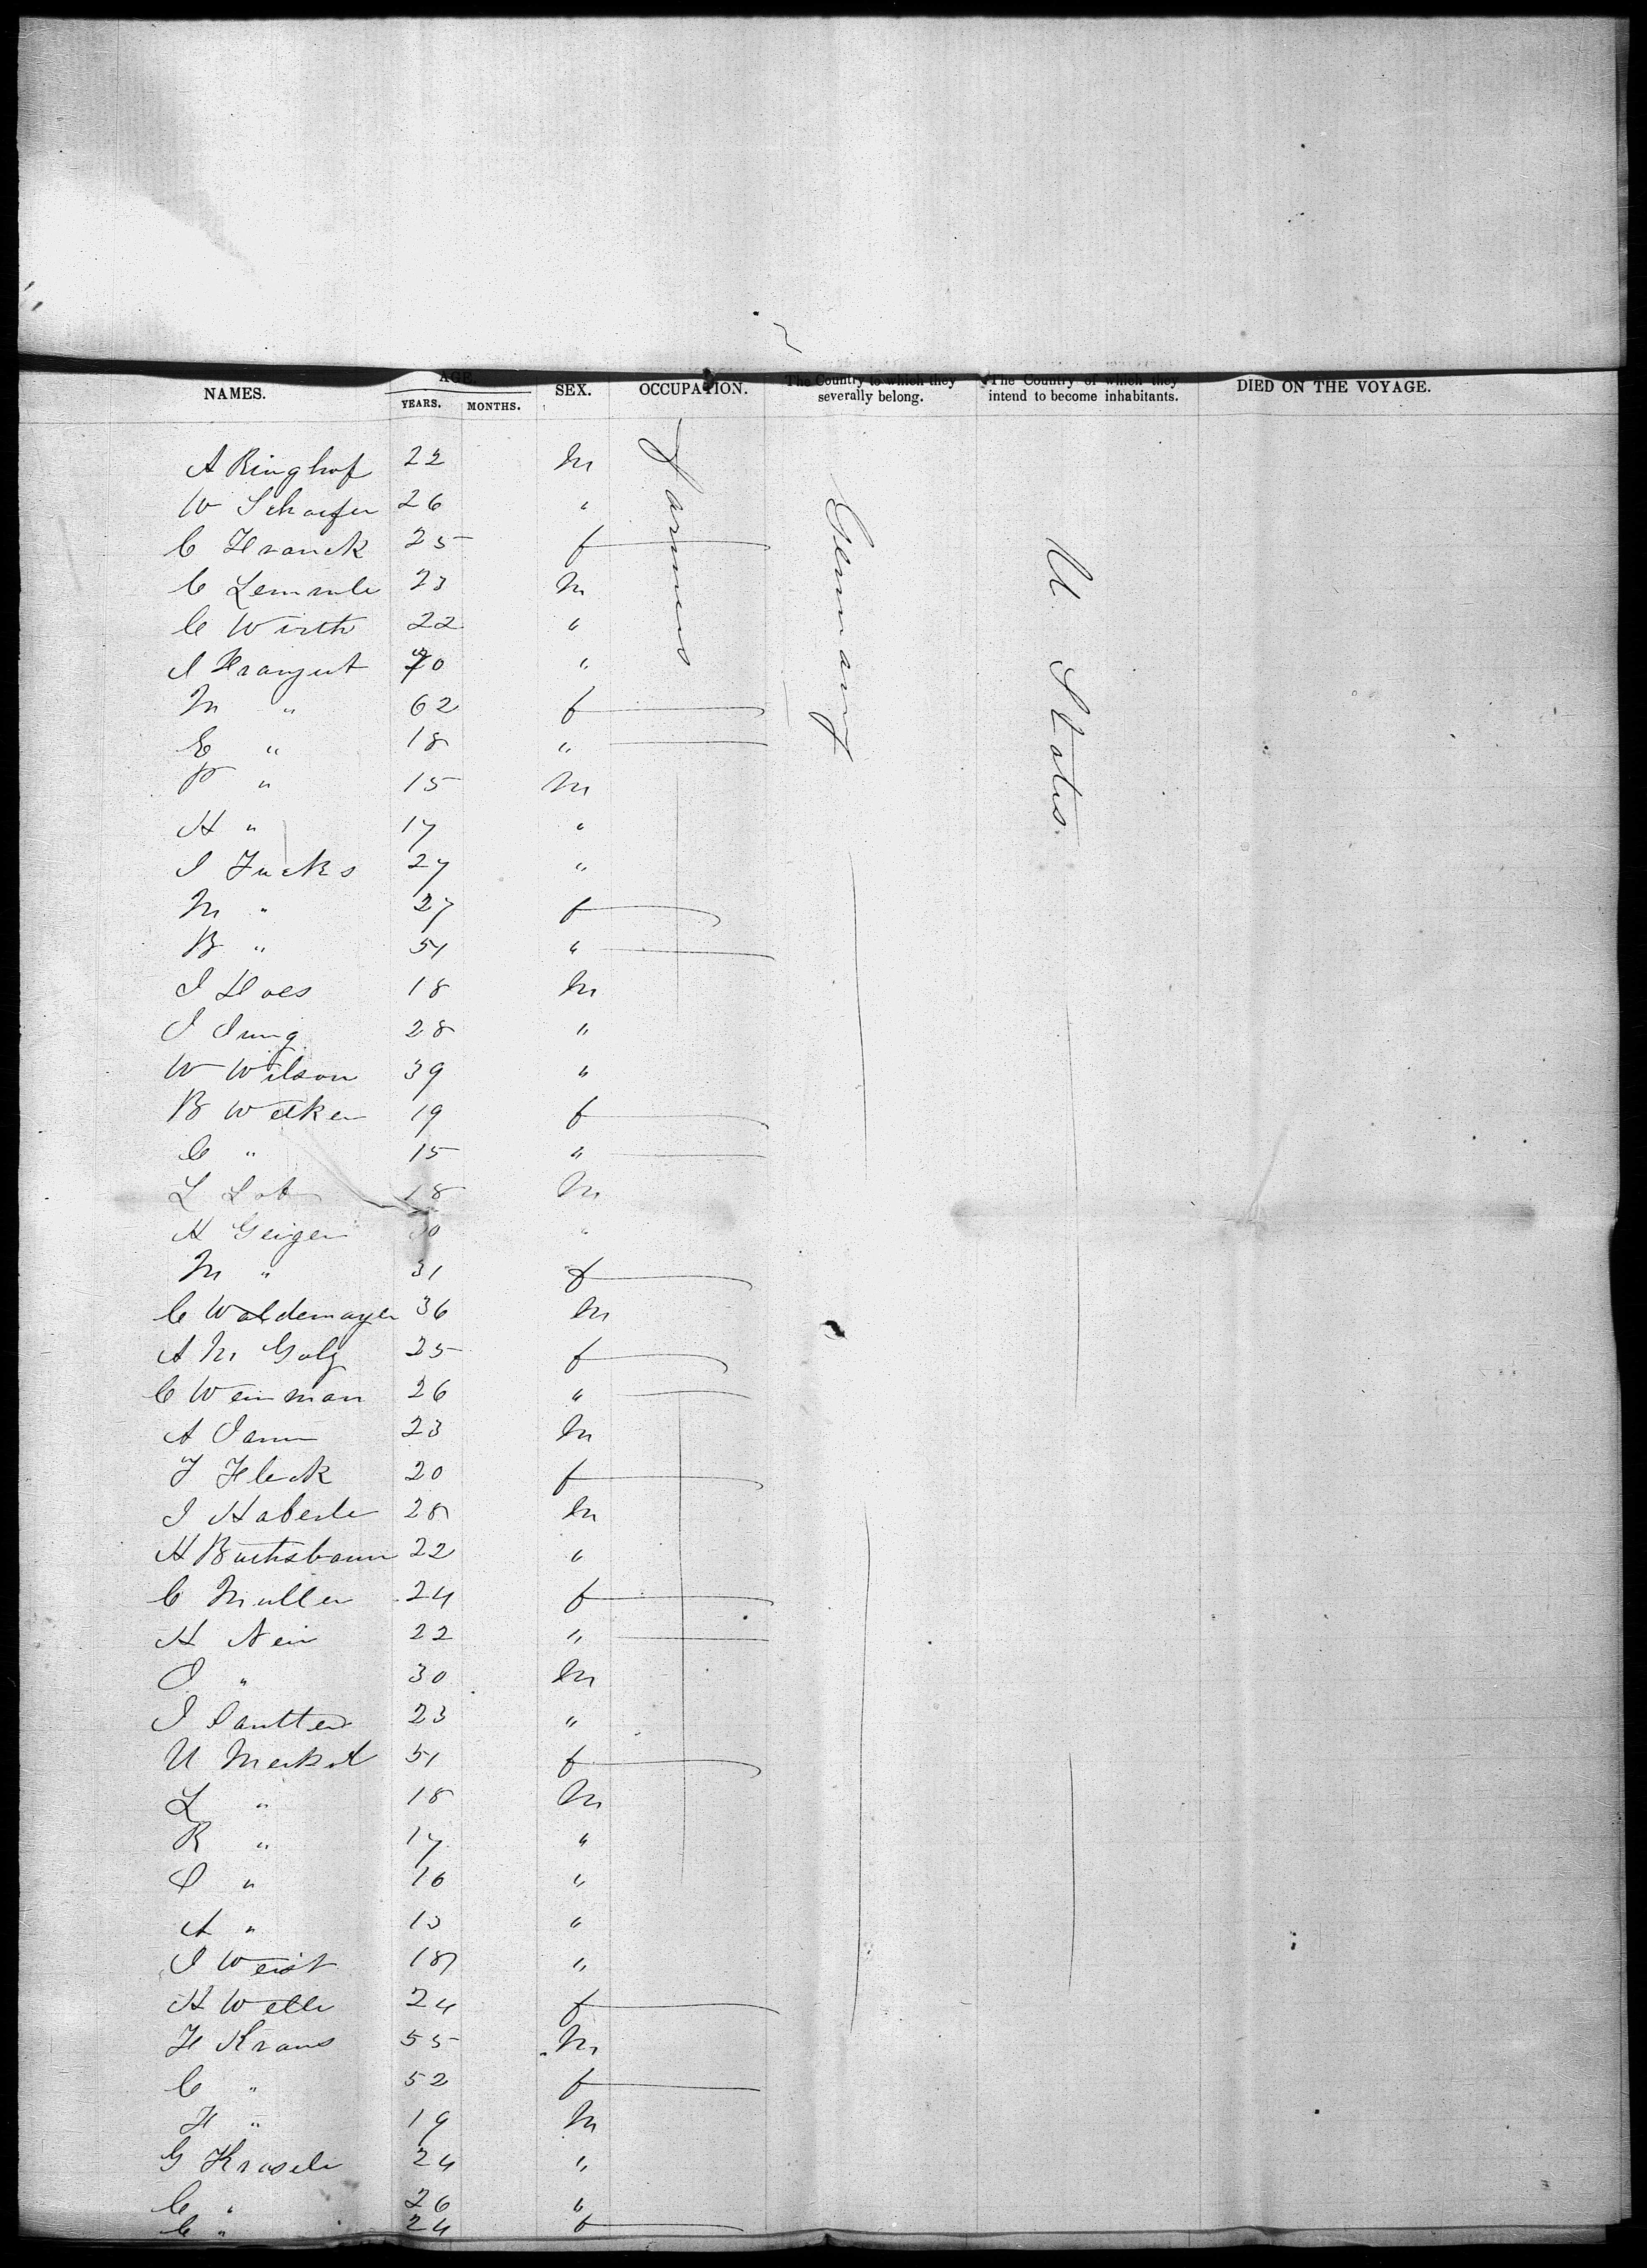 NAMES. AGE. YEARS. MONTHS. SEX. OCCUPATION. The Country to which they severally belong. The Country of which they intend to become inhabitants. DIED ON THE VOYAGE.
Farmers
Germany
U. States.
A Ringhof 22 m
W Schaefer 26 "
C Franck 25 f
C Lemmle 23 m
C Wirth 22 "
J 70 "
M " 62 f
E " 18 "
P " 15 m
H " 17 "
J Fucks 27 "
M " 27 f
B " 54 "
J Haes 18 m
J Jung 28 "
W Wilson 39 "
B Welker 19 f
C " 15 "
L 18 m
H Geiger 30 "
M " 31 f
C Waldemayer 36 m
A M Golz 25 f
C Weinman 26 "
A 23 m
F Fleck 20 f
J Haberle 28 m
H Buchsbaum 22 "
C Muller 24 f
H Nein 22 "
J " 30 m
J Sautter 23 "
U 51 f
L " 18 m
R " 17 "
J " 16 "
A " 13 "
J Weist 18 "
H Welle 24 f
F Kraus 55 m
C " 52 f
F " 19 m
G 24 "
C " 26 "
C " 24 f